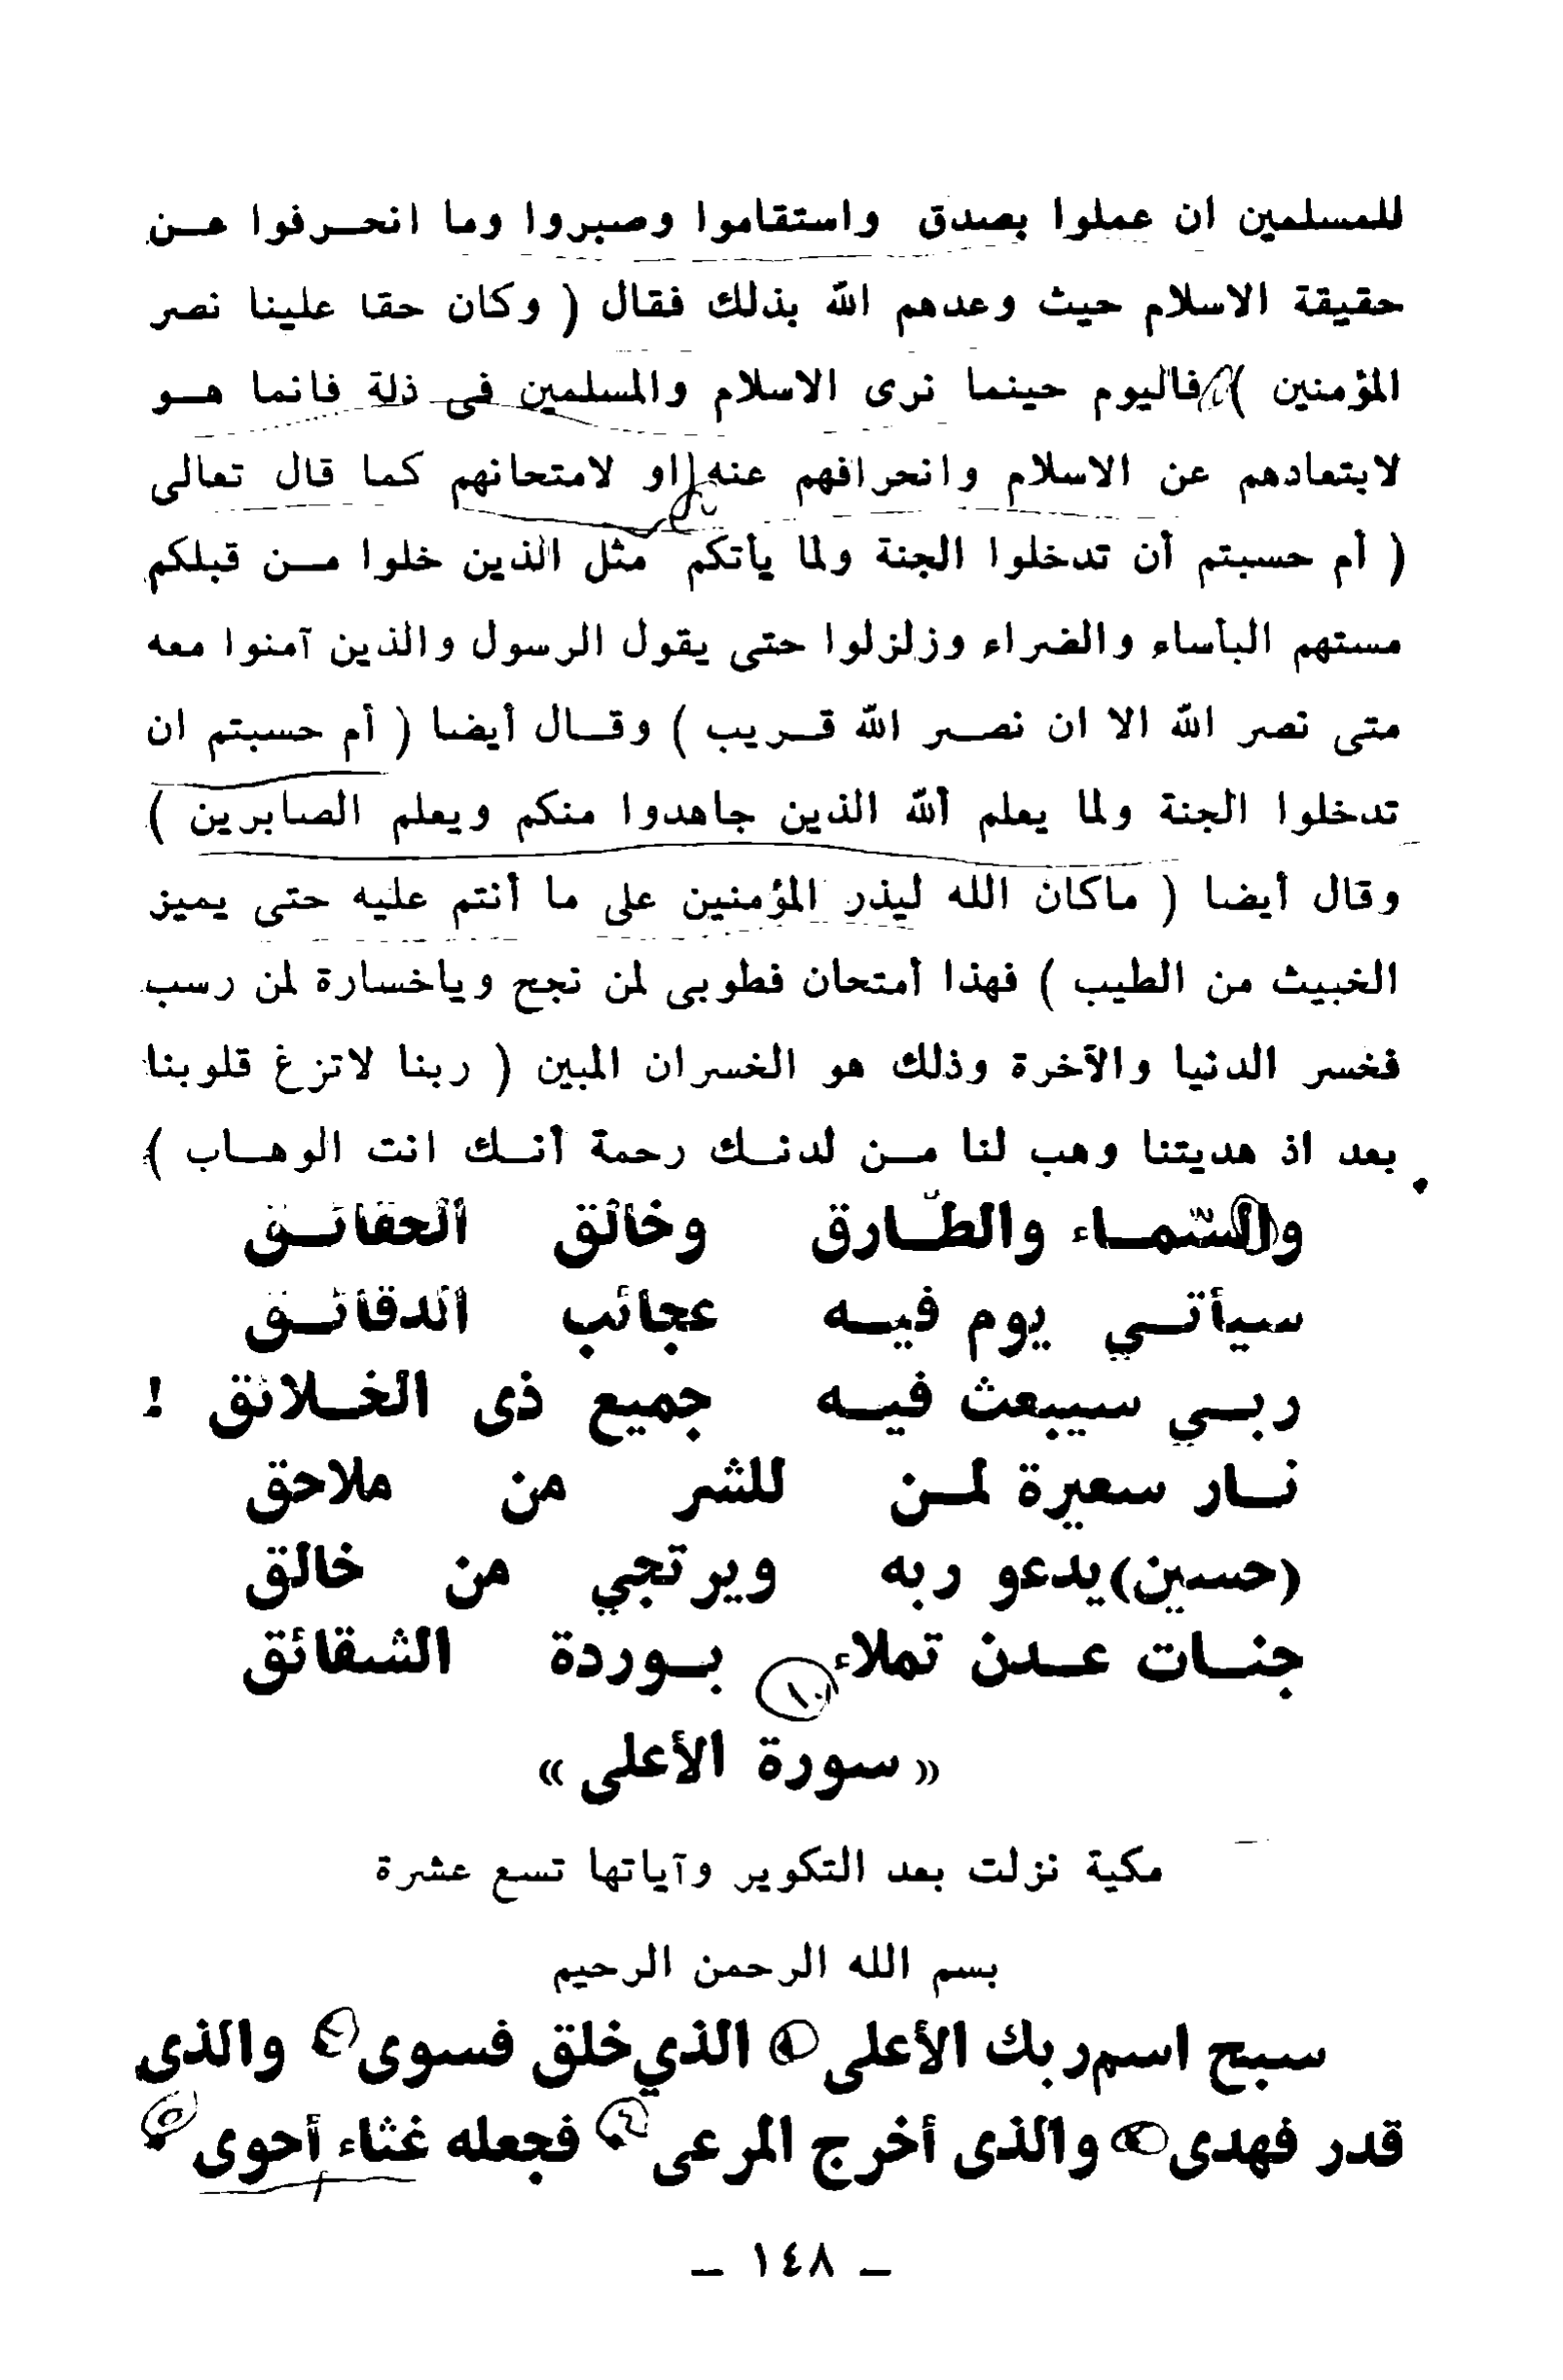 للمسلمين ان عملوا بصدق واستقاموا وصبروا وما انحرفوا عن
حقيقة الاسلام حيث وعدهم الله بذلك فقال ( وكان حقا علينا نصر
المؤمنين ) فاليوم حينما نرى الاسلام والمسلمين في ذلة فانما هو
لابتعادهم عن الاسلام وانحرافهم عنه او لامتحانهم كما قال تعالى
( أم حسبتم أن تدخلوا الجنة ولما يأتكم مثل الذين خلوا من قبلكم
مستهم البأساء والضراء وزلزلوا حتى يقول الرسول والذين آمنوا معه
متى نصر الله الا ان نصر الله قريب ) وقال أيضا ( أم حسبتم ان
تدخلوا الجنة ولما يعلم الله الذين جاهدوا منكم ويعلم الصابرين )
وقال أيضا ( ماكان الله ليذر المؤمنين على ما أنتم عليه حتى يميز
الخبيث من الطيب ) فهذا أمتحان فطوبى لمن نجح وياخسارة لمن رسب
فخسر الدنيا والآخرة وذلك هو الخسران المبين ( ربنا لاتزغ قلوبنا
بعد اذ هديتنا وهب لنا من لدنك رحمة أنك انت الوهاب )
والسماء والطارق وخالق الحقائق
سيأتي يوم فيه عجائب الدقائق
ربي سيبعث فيه جميع ذى الخلائق !
نار سعيرة لمن للشر من ملاحق
(حسين) يدعو ربه ويرتجي من خالق
جنات عدن تملاء بوردة الشقائق
١٠
« سورة الأعلى »
مكية نزلت بعد التكوير وآياتها تسع عشرة
بسم الله الرحمن الرحيم
سبح اسم ربك الأعلى الذي خلق فسوى والذى
قدر فهدى والذى أخرج المرعى فجعله غثاء أحوى
– ١٤٨ –